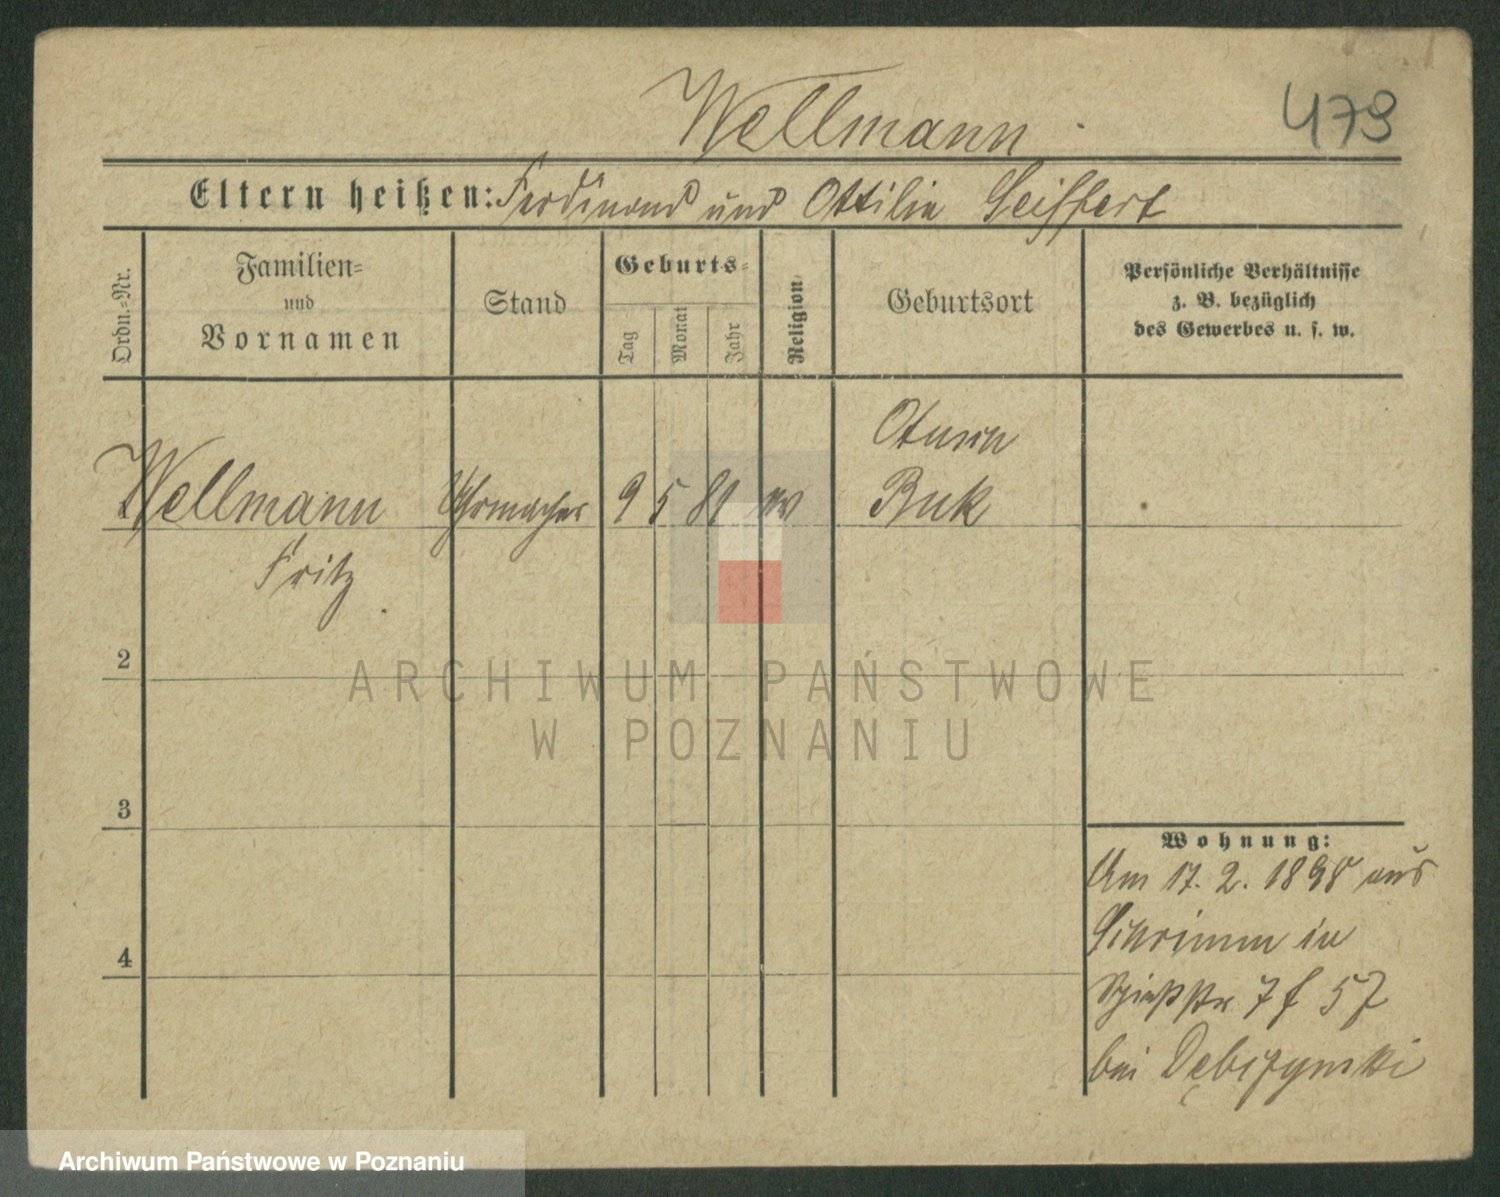 Wellmann
479
Eltern heißen: Ferdinand und Ottilie Seiffert
Ordn.-Nr.
Familien-
und
Vornamen
Stand
Geburts-
Tag
Monat
Jahr
Religion
Geburtsort
Persönliche Verhältnisse
z. B. bezüglich
des Gewerbes u. s. w.
Wellmann Uhrmacher 9 5 81 ev Buk
Fritz
2
ARCHIWUM PAŃSTWOWE
W POZNANIU
3
Wohnung:
Am 17. 2. 1898 aus
Schrimm in
4
bei
Archiwum Państwowe w Poznaniu